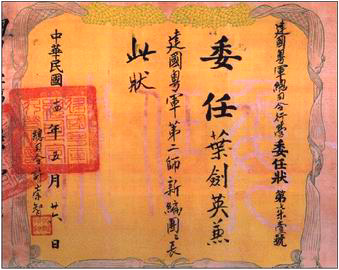 建國粵軍總司令行營委任狀 第六柒壹號
委任葉劍英兼
建國粵軍第二師新編團團長
此狀
總司令許崇智
中華民國十四年五月廿六日